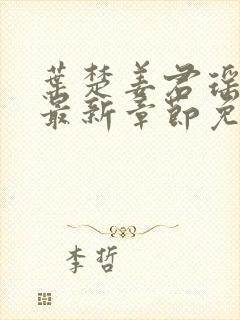 葉楚姜君瑶
最新章節免
李哲